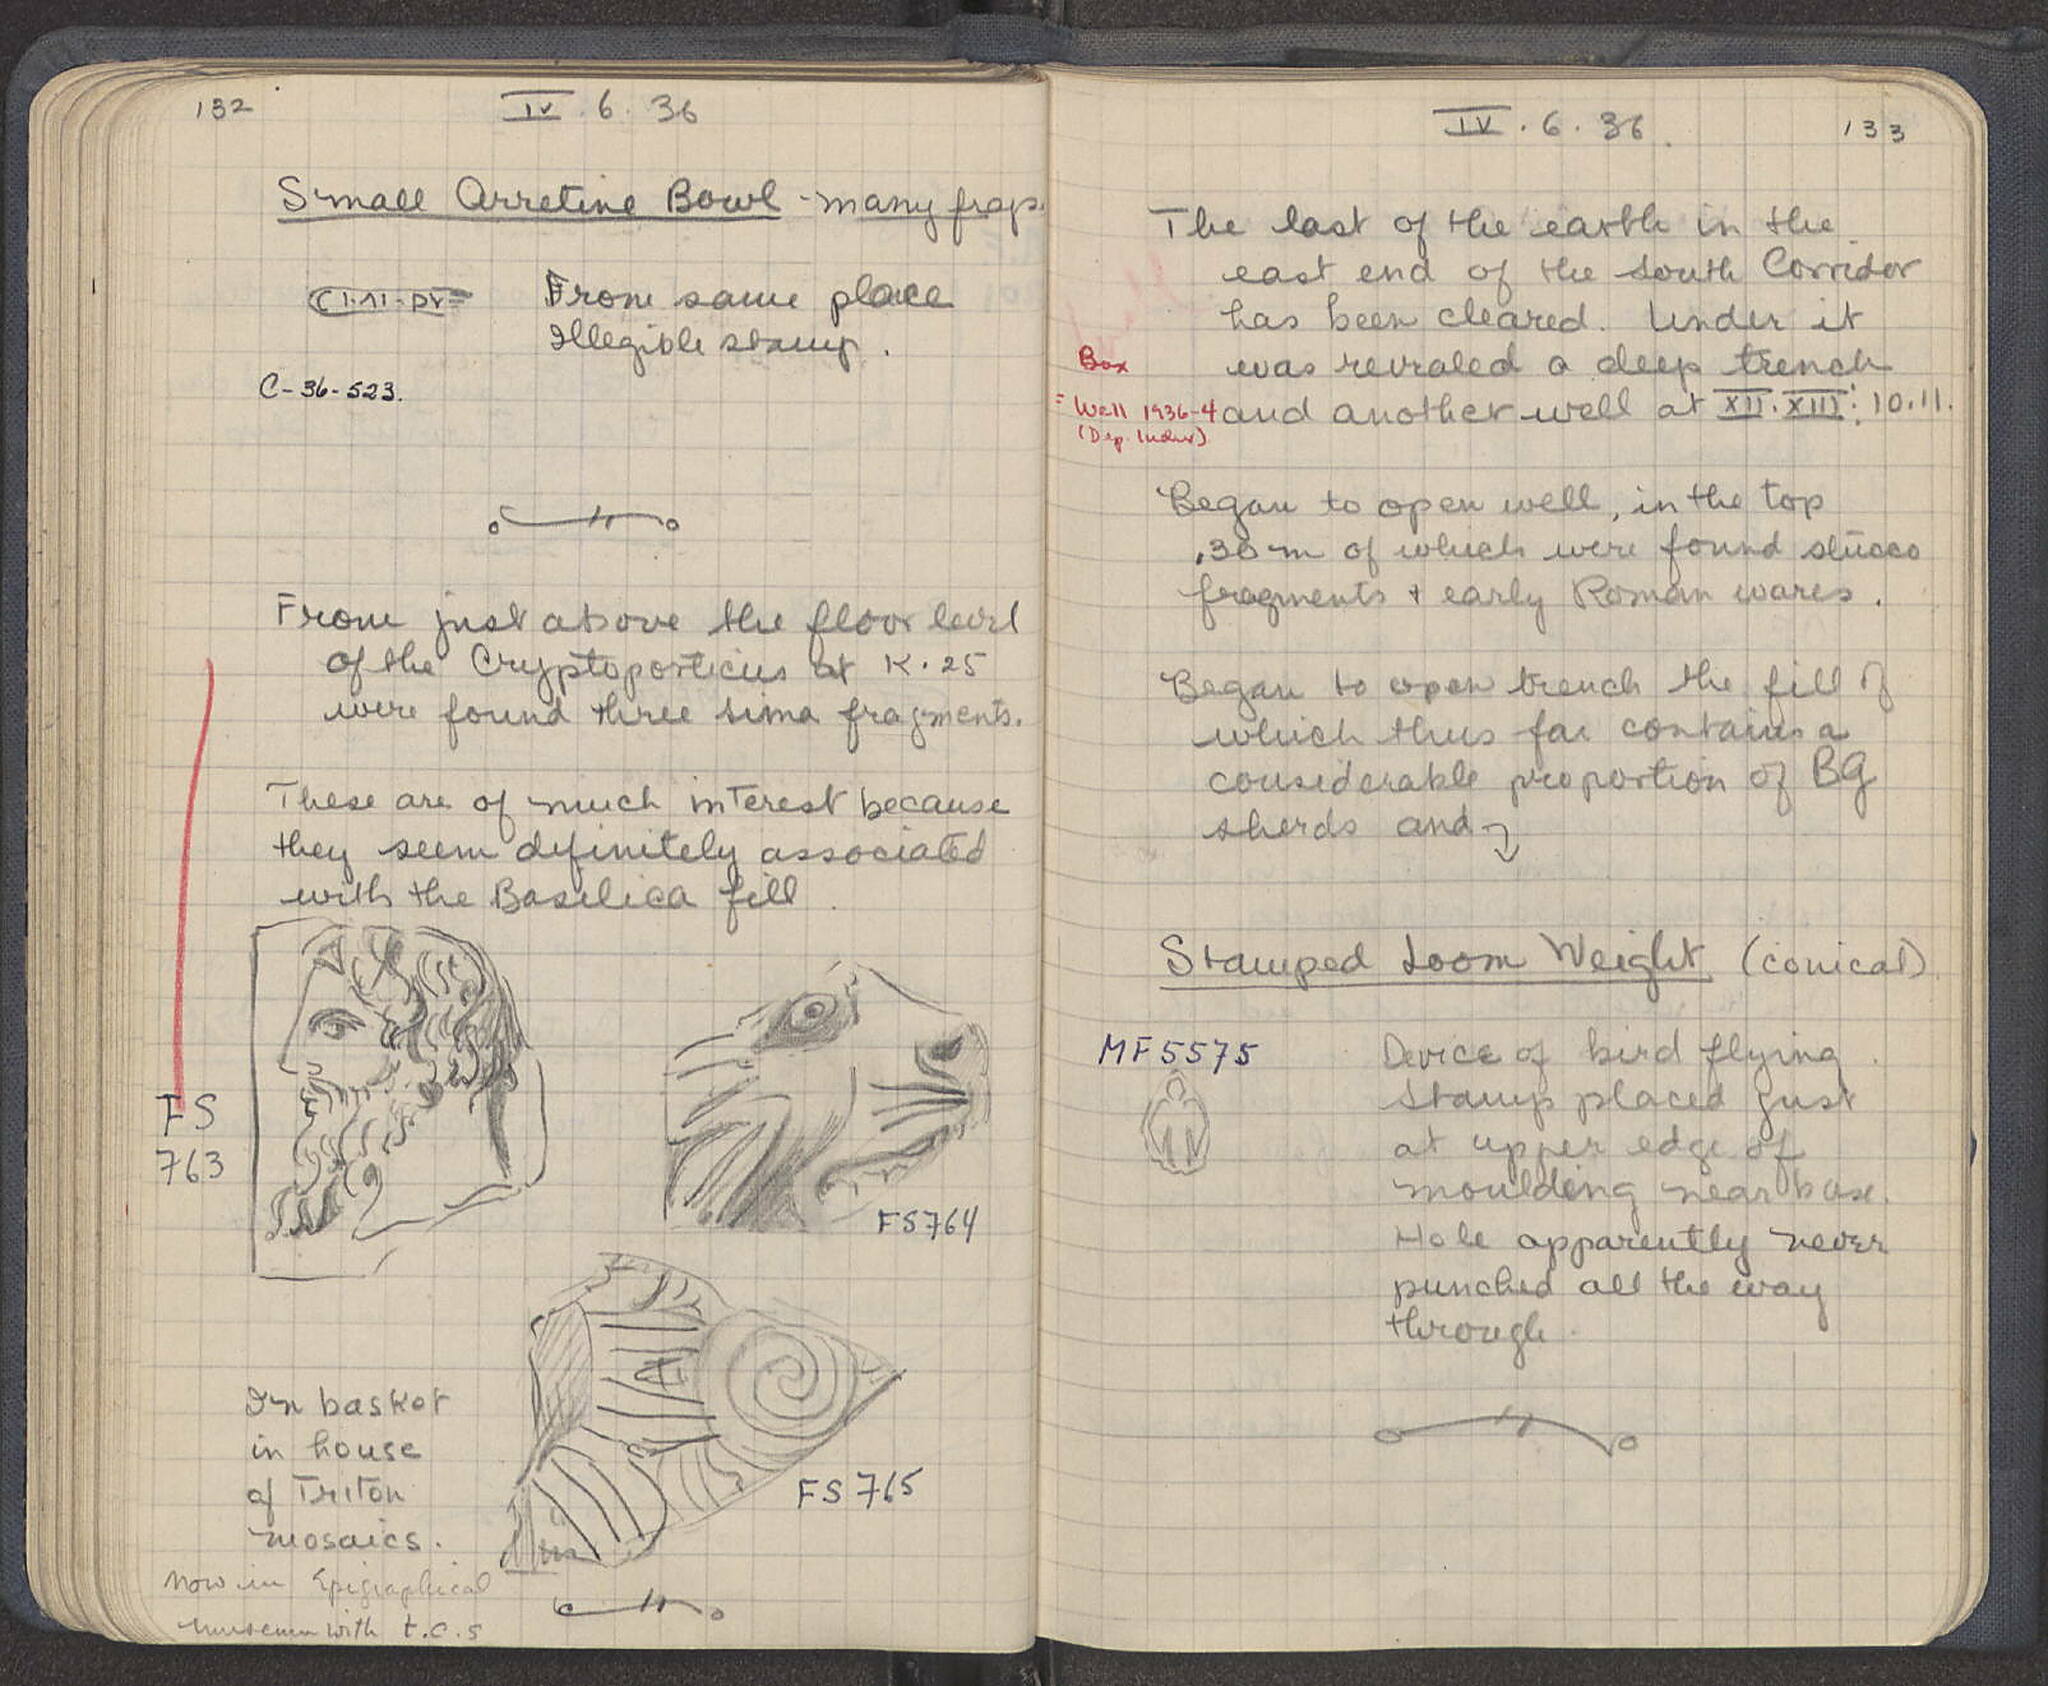 132
IV. 6. 36
Small Arretine Bowl - many frags.
From same place
Illegible stamp.
C-36-523.
From just above the floor level
of the Cryptoporticus at K.25
were found three sima fragments.
These are of much interest because
they seem definitely associated
with the Basilica fill.
FS
763
FS764
FS765
In basket
in house
of Triton
mosaics.
Now in Epigraphical
museum with t.c.s
IV. 6. 36.
133
The last of the earth in the
east end of the South Corridor
has been cleared. Under it
was revealed a deep trench
and another well at XII.XIII: 10.11.
Box
= Well 1936-4
(Dep. Index)
Began to open well, in the top
.30 m of which were found stucco
fragments + early Roman wares.
Began to open trench the fill of
which thus far contains a
considerable proportion of BG
sherds and
Stamped Loom Weight (conical)
MF5575
Device of bird flying.
Stamp placed just
at upper edge of
moulding near base.
Hole apparently never
punched all the way
through.